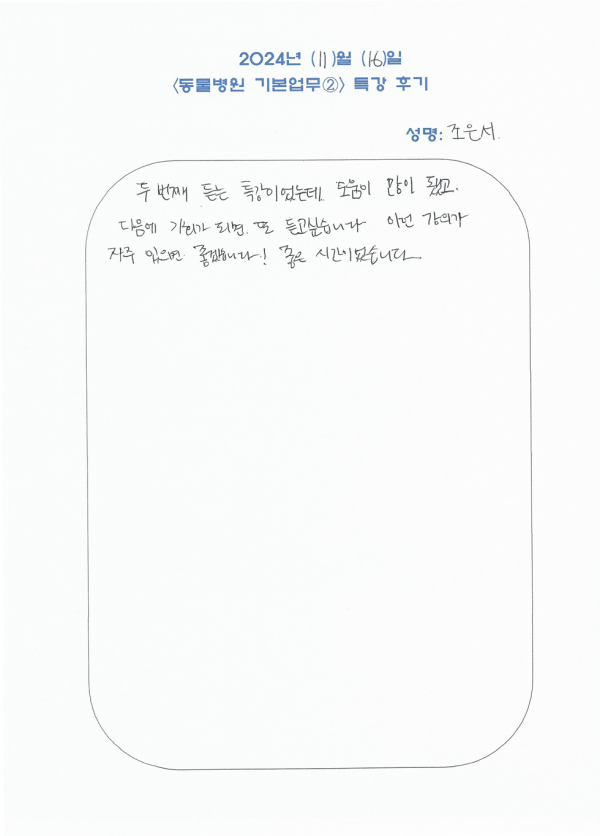 2024년 (11)월 (16)일
<동물병원 기본업무②> 특강 후기
성명: 조은서.
두번째 듣는 특강이었는데, 도움이 많이 됐고,
다음에 기회가 되면, 또 듣고싶습니다 이런 강의가
자주 있으면 좋겠습니다! 좋은 시간이었습니다.